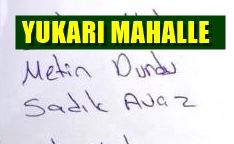 YUKARI MAHALLE
Metin Durdu
Sadık Avaz